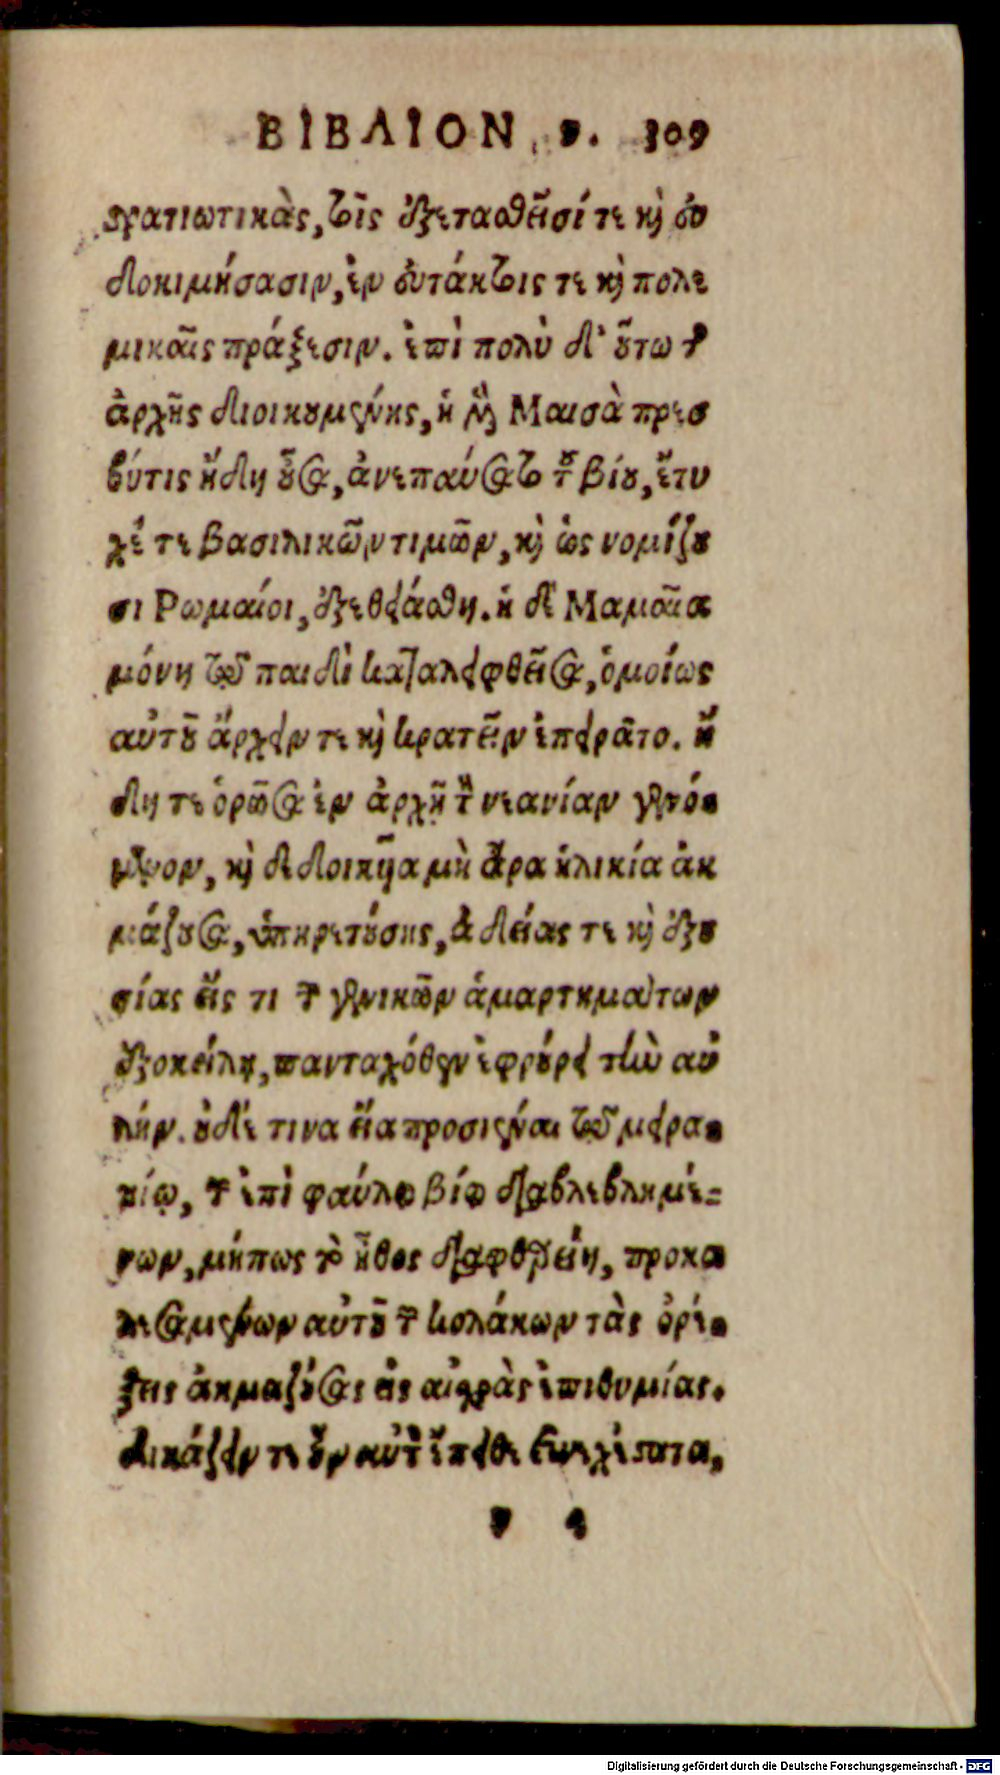 ΒΙΒΛΙΟΝ ϛ. 309
στρατιωτικὰς, τοῖς ἐξετασθεῖσί τε καὶ εὐ
δοκιμήσασιν, ἐν εὐτάκτοις τε καὶ πολε
μικαῖς πράξεσιν. ἐπὶ πολὺ δ' οὕτω τῆς
ἀρχῆς διοικουμένης, ἡ μὲν Μαισὰ πρεσ
βύτις ἤδη οὖσα, ἀνεπαύσατο τοῦ βίου, ἔτυ
χέ τε βασιλικῶν τιμῶν, καὶ ὡς νομίζου
σι Ρωμαίοι, ἐξεθειάσθη. ἡ δὲ Μαμαῖα
μόνη τῷ παιδὶ καταλειφθεῖσα, ὁμοίως
αὐτοῦ ἄρχειν τε καὶ κρατεῖν ἐπειρᾶτο. ἤ
δη τε ὁρῶσα ἐν ἀρχῇ τὸν νεανίαν γενό-
μενον, καὶ δεδοικῆα μὴ ἄρα ἡλικία ἀκ
μάζουσα, ὑπηρετούσης, ἀδείας τε καὶ ἐξου
σίας εἴς τι τῶν γενικῶν ἁμαρτημάτων
ἐξοκείλῃ, πανταχόθεν ἐφρούρει τὴν αὐ
λήν. οὐδέ τινα εἴα προσιέναι τῷ μειρα-
κίῳ, τῶν ἐπὶ φαύλῳ βίῳ διαβλεβλημέ-
νων, μήπως τὸ ἦθος διαφθαρείη, προκα
λεσαμένων αὐτοῦ τῶν κολάκων τὰς ὀρέ-
ξεις ἀκμαζούσας εἰς αἰσχρὰς ἐπιθυμίας.
δικάζειν τε οὖν αὐτὸν ἔπειθε συνεχέστατα,
ϛ 4
Digitalisierung gefördert durch die Deutsche Forschungsgemeinschaft - DFG